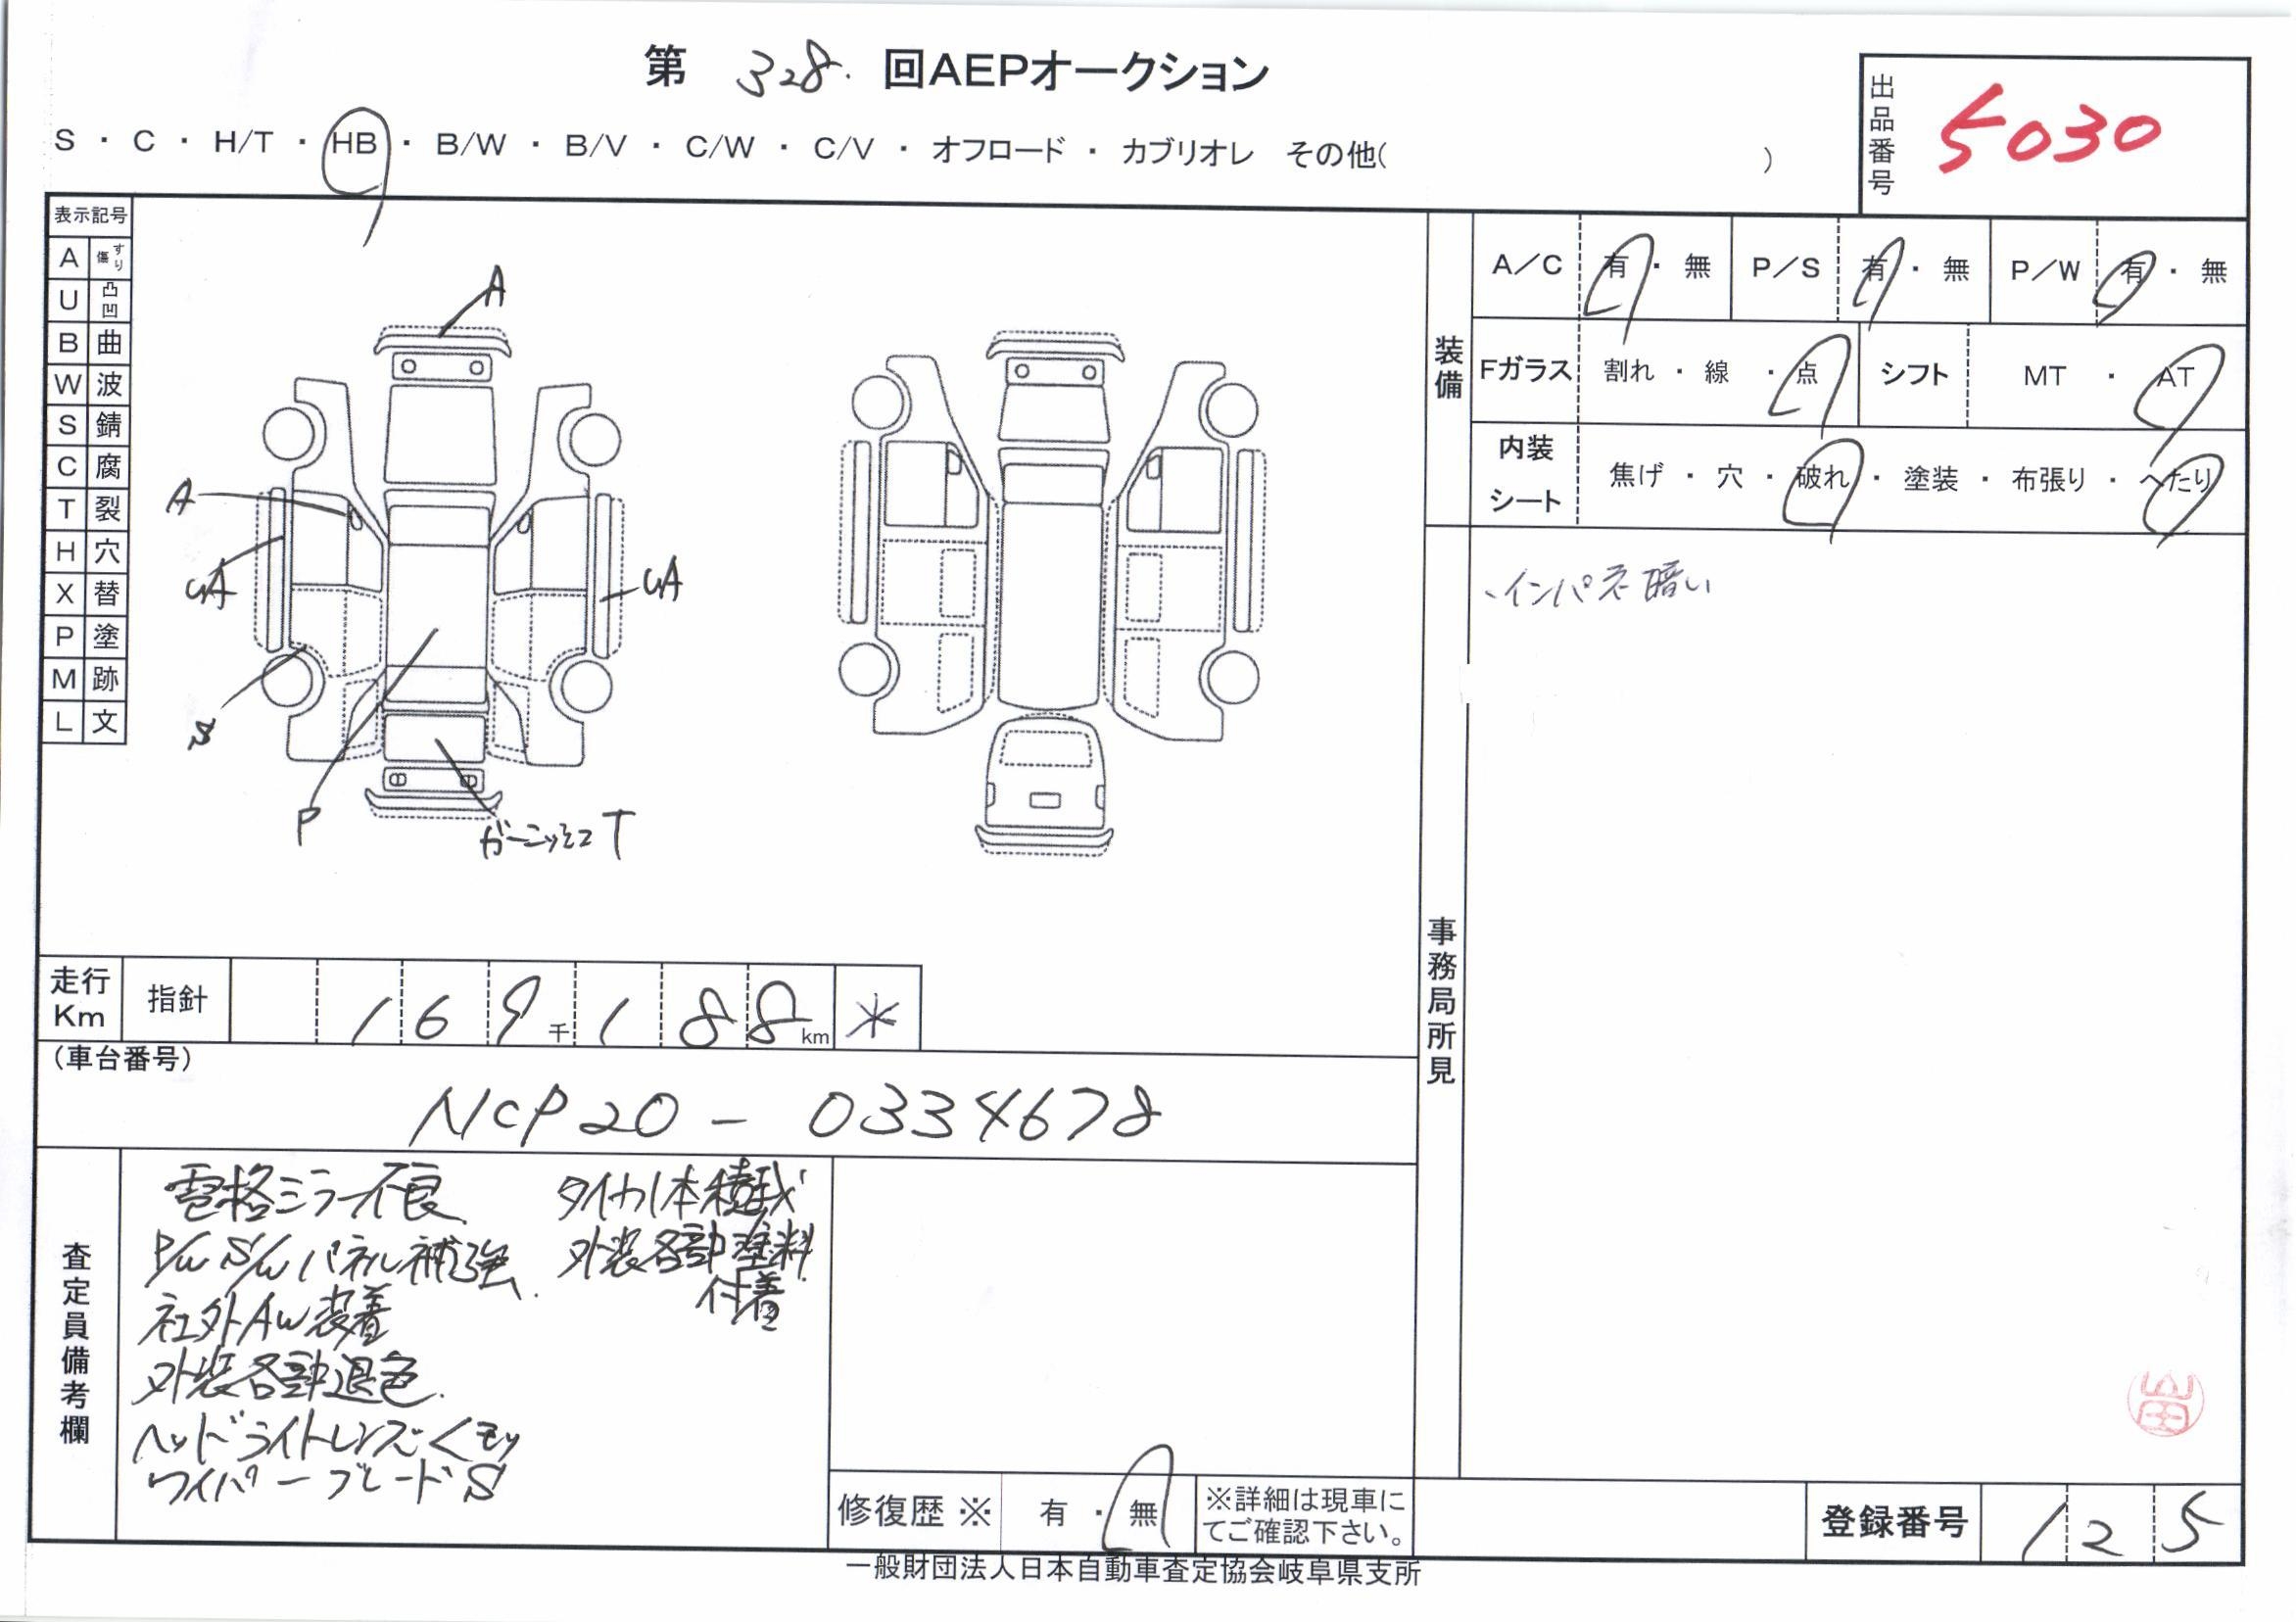 第 328. 回AEPオークション
出品番号 5030
S ・ C ・ H/T ・ HB ・ B/W ・ B/V ・ C/W ・ C/V ・ オフロード ・ カブリオレ その他( )
表示記号
A すり傷
U 凸凹
B 曲
W 波
S 錆
C 腐
T 裂
H 穴
X 替
P 塗
M 跡
L 文
A
A
UA
UA
S
P
ガーニッシュT
装備
A/C 有・無 P/S 有・無 P/W 有・無
Fガラス 割れ・線・点 シフト MT・AT
内装
シート
焦げ・穴・破れ・塗装・布張り・へたり
事務局所見
、インパネ暗い
走行Km 指針 1 6 9 千 1 8 8 km *
(車台番号)
NCP20-0334678
査定員備考欄
電格ミラー不良
P/W S/W パネル補強.
社外AW装着
外装各部退色.
ヘッドライトレンズくもり
ワイパーブレードS
タイヤ1本積載
外装各部塗料
付着
修復歴 ※ 有・無
※詳細は現車に
てご確認下さい。
登録番号 1 2 5
一般財団法人日本自動車査定協会岐阜県支所